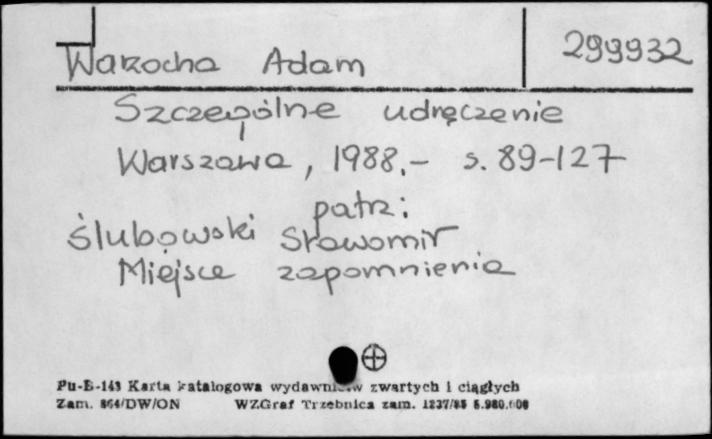 Warzocha Adam 299932
Szczególne udręczenie
Warszawa, 1988.- s. 89-127
patrz:
Ślubowski Sławomir
Miejsce zapomnienia
Pu-B-143 Karta katalogowa wydawnictw zwartych i ciągłych
Zam. 864/DW/ON WZGraf Trzebnica zam. 1237/85 5.980.000